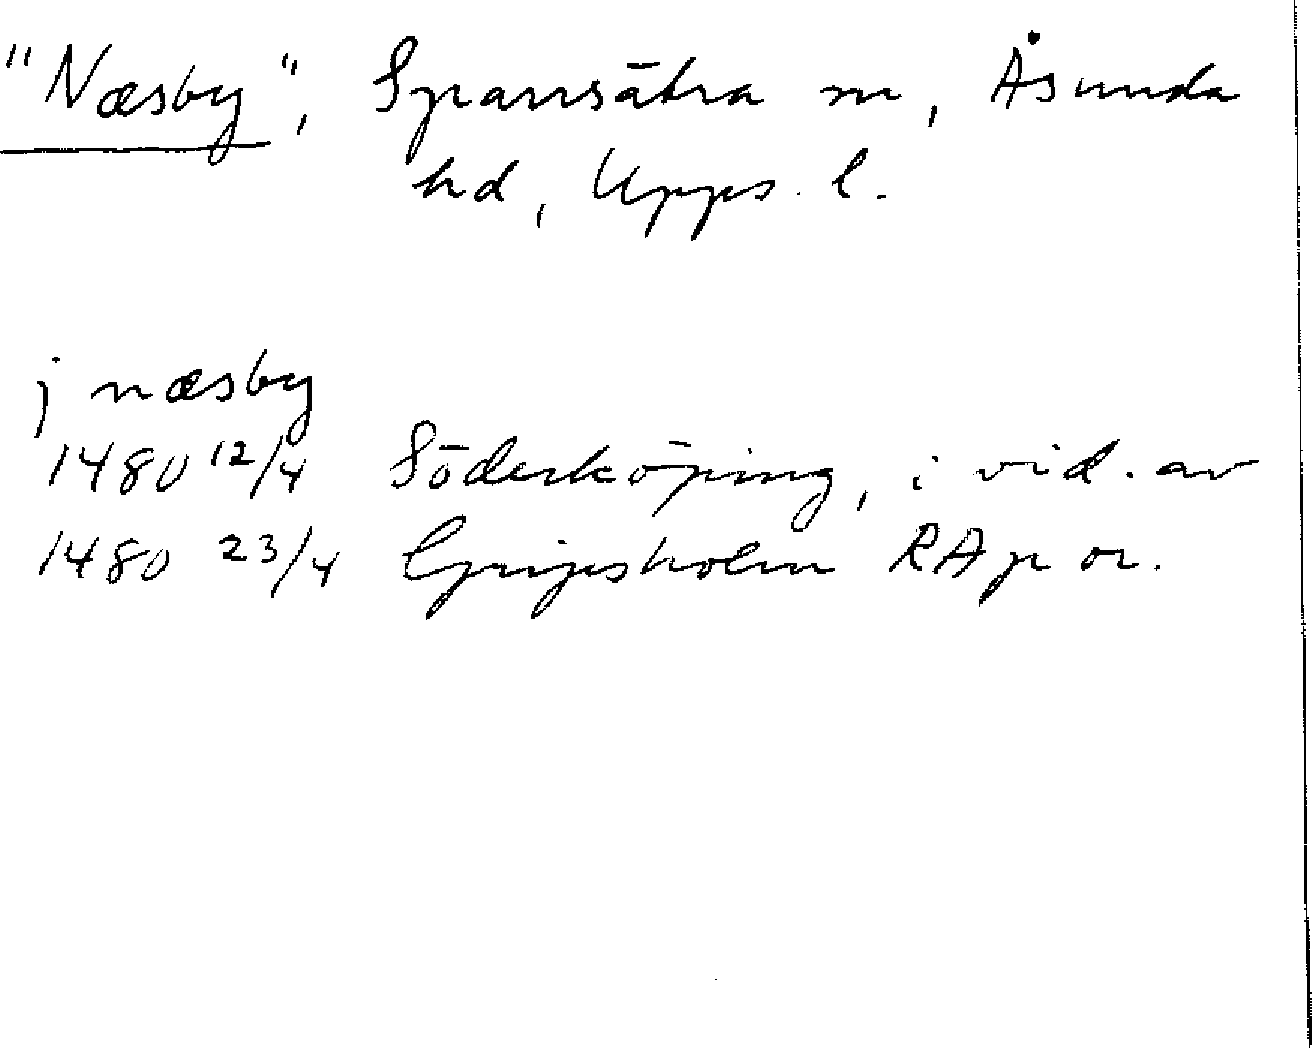 "Næsby", Sparrsätra sn, Åsunda
hd, Upps. l.
j næsby
1480 12/4 Söderköping, i vid. av
1480 23/4 Gripsholm RAp or.